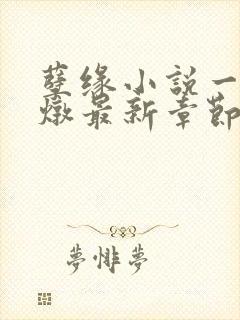 孽缘小説一
燉最新章節
夢悱夢